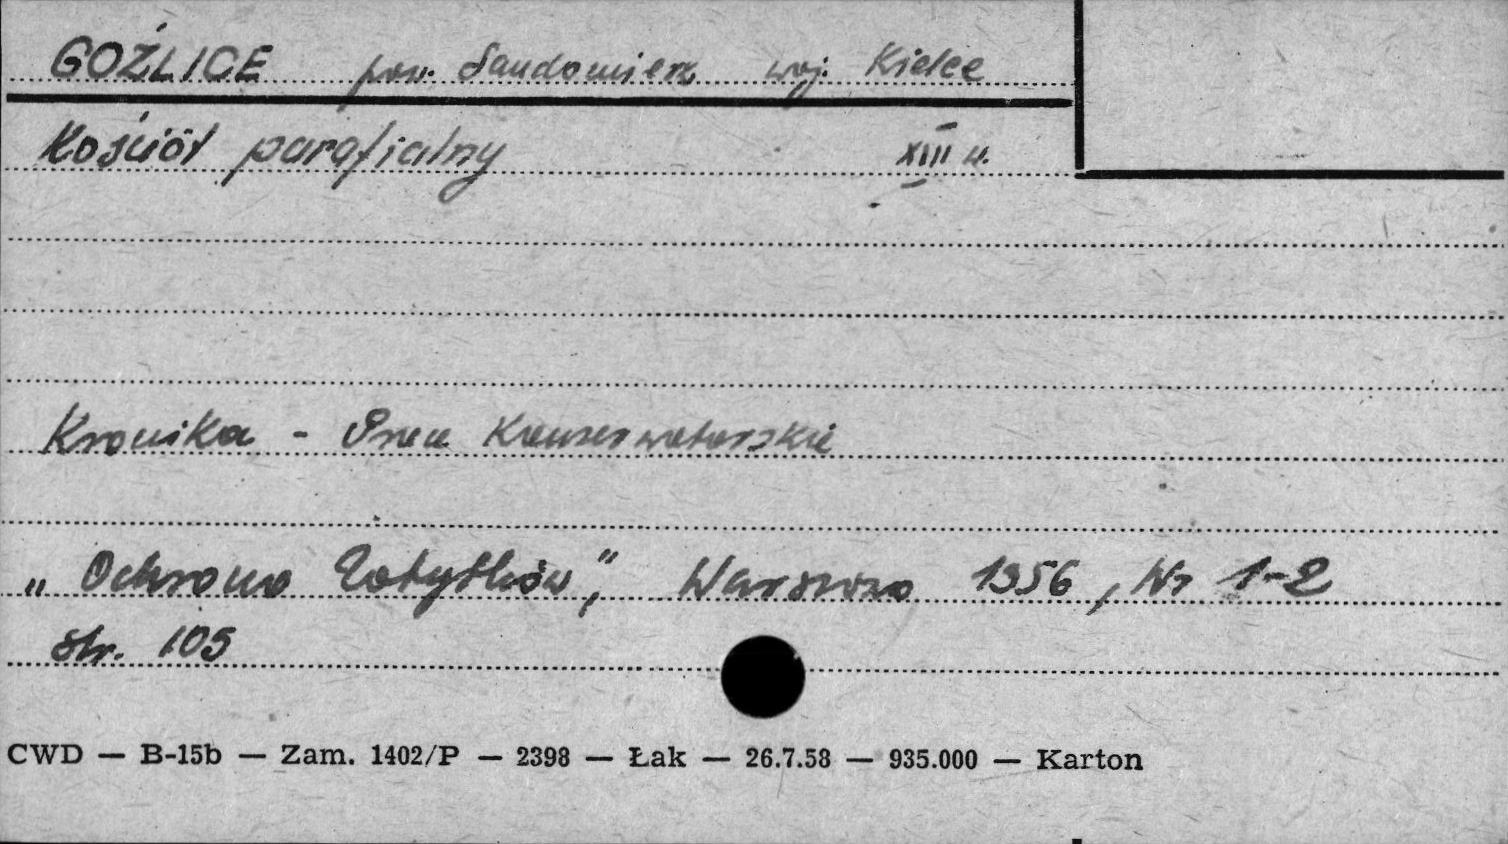 GOŹLICE pow. Sandomierz woj. Kielce
Kościół parafialny XIII w.
Kronika - Prace Konserwatorskie
„Ochrona Zabytków", Warszawa 1956, Nr 1-2
str. 105
CWD — B-15b — Zam. 1402/P — 2398 — Łak — 26.7.58 — 935.000 — Karton